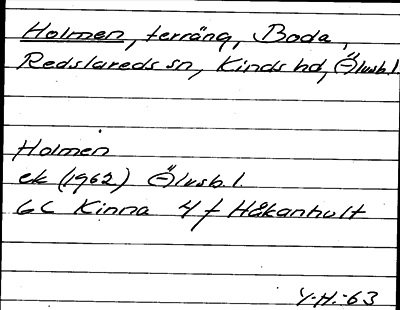 Holmen, terräng, Boda,
Redslareds sn, Kinds hd, Älvsb.l
Holmen
ek (1962) Älvsb.l.
6C Kinna 4 f Håkanhult
Y.H.-63